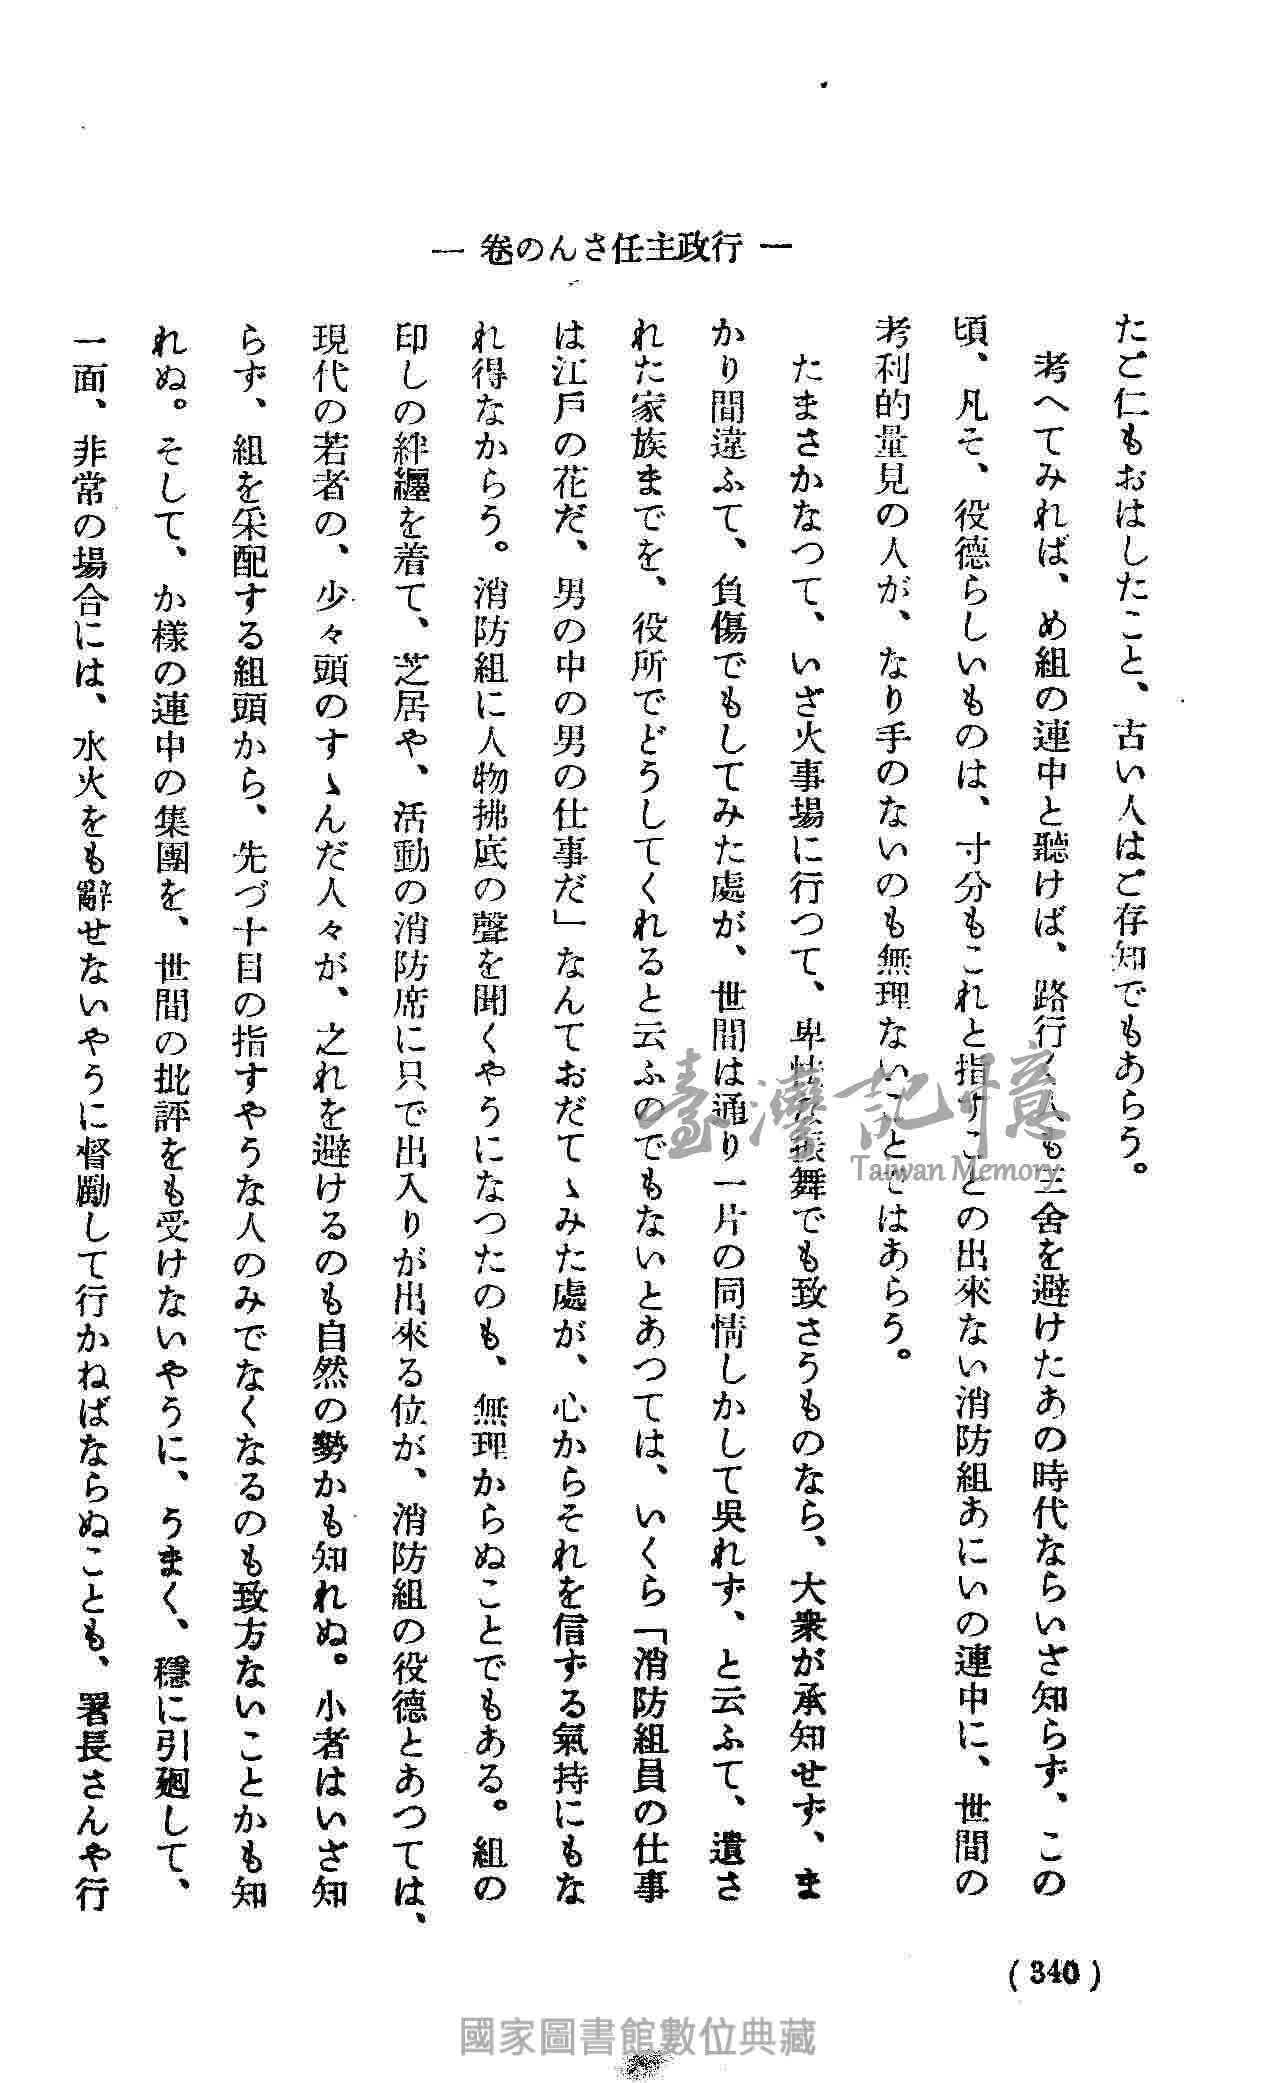 一 卷のんさ任主政行 一
たご仁もおはしたこと、古い人はご存知でもあらう。
考へてみれば、め組の連中と聽けば、路行く人も三舍を避けたあの時代ならいざ知らず、この
頃、凡そ、役德らしいものは、寸分もこれと指すことの出來ない消防組あにいの連中に、世間の
考利的量見の人が、なり手のないのも無理ないことではあらう。
たまさかなつて、いざ火事場に行つて、卑怯な振舞でも致さうものなら、大衆が承知せず、ま
かり間違ふて、負傷でもしてみた處が、世間は通り一片の同情しかして吳れず、と云ふて、遺さ
れた家族までを、役所でどうしてくれると云ふのでもないとあつては、いくら「消防組員の仕事
は江戶の花だ、男の中の男の仕事だ」なんておだてゝみた處が、心からそれを信ずる氣持にもな
れ得なからう。消防組に人物拂底の聲を聞くやうになつたのも、無理からぬことでもある。組の
印しの絆纏を着て、芝居や、活動の消防席に只で出入りが出來る位が、消防組の役德とあつては、
現代の若者の、少々頭のすゝんだ人々が、之れを避けるのも自然の勢かも知れぬ。小者はいざ知
らず、組を采配する組頭から、先づ十目の指すやうな人のみでなくなるのも致方ないことかも知
れぬ。そして、か樣の連中の集團を、世間の批評をも受けないやうに、うまく、穩に引廻して、
一面、非常の場合には、水火をも辭せないやうに督勵して行かねばならぬことも、署長さんや行
(340)
臺灣記憶
Taiwan Memory
國家圖書館數位典藏